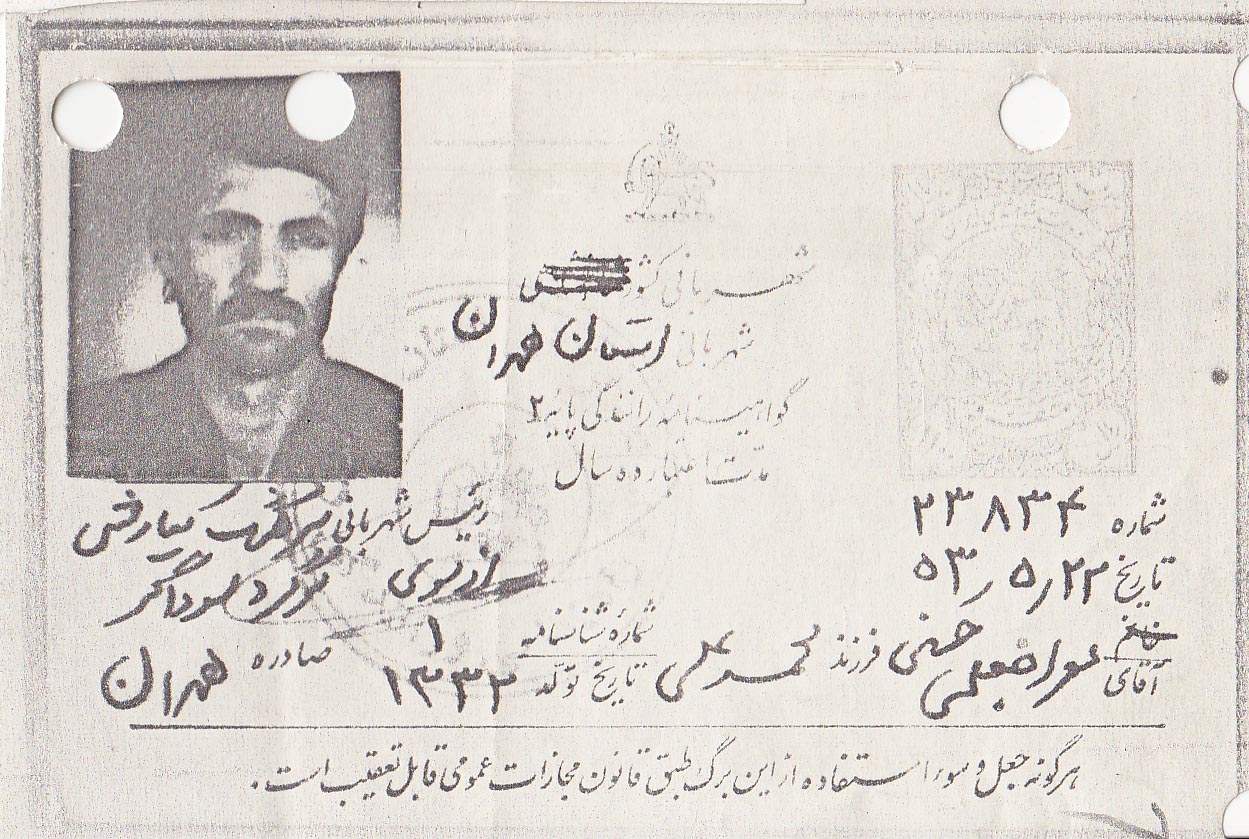 شهربانی کشور
شهربانی استان تهران
گواهینامه رانندگی پایه ۲
مدت اعتبار ده سال
شماره ۲۳۸۳۴
تاریخ ۵۳٫۵٫۲۲
خانم
آقای حسنی فرزند محمد علی
شماره شناسنامه ۱
تاریخ تولد ۱۳۳۲
صادره تهران
رئیس شهربانی
از سوی
هرگونه جعل و سوء استفاده از این برگ طبق قانون مجازات عمومی قابل تعقیب است.